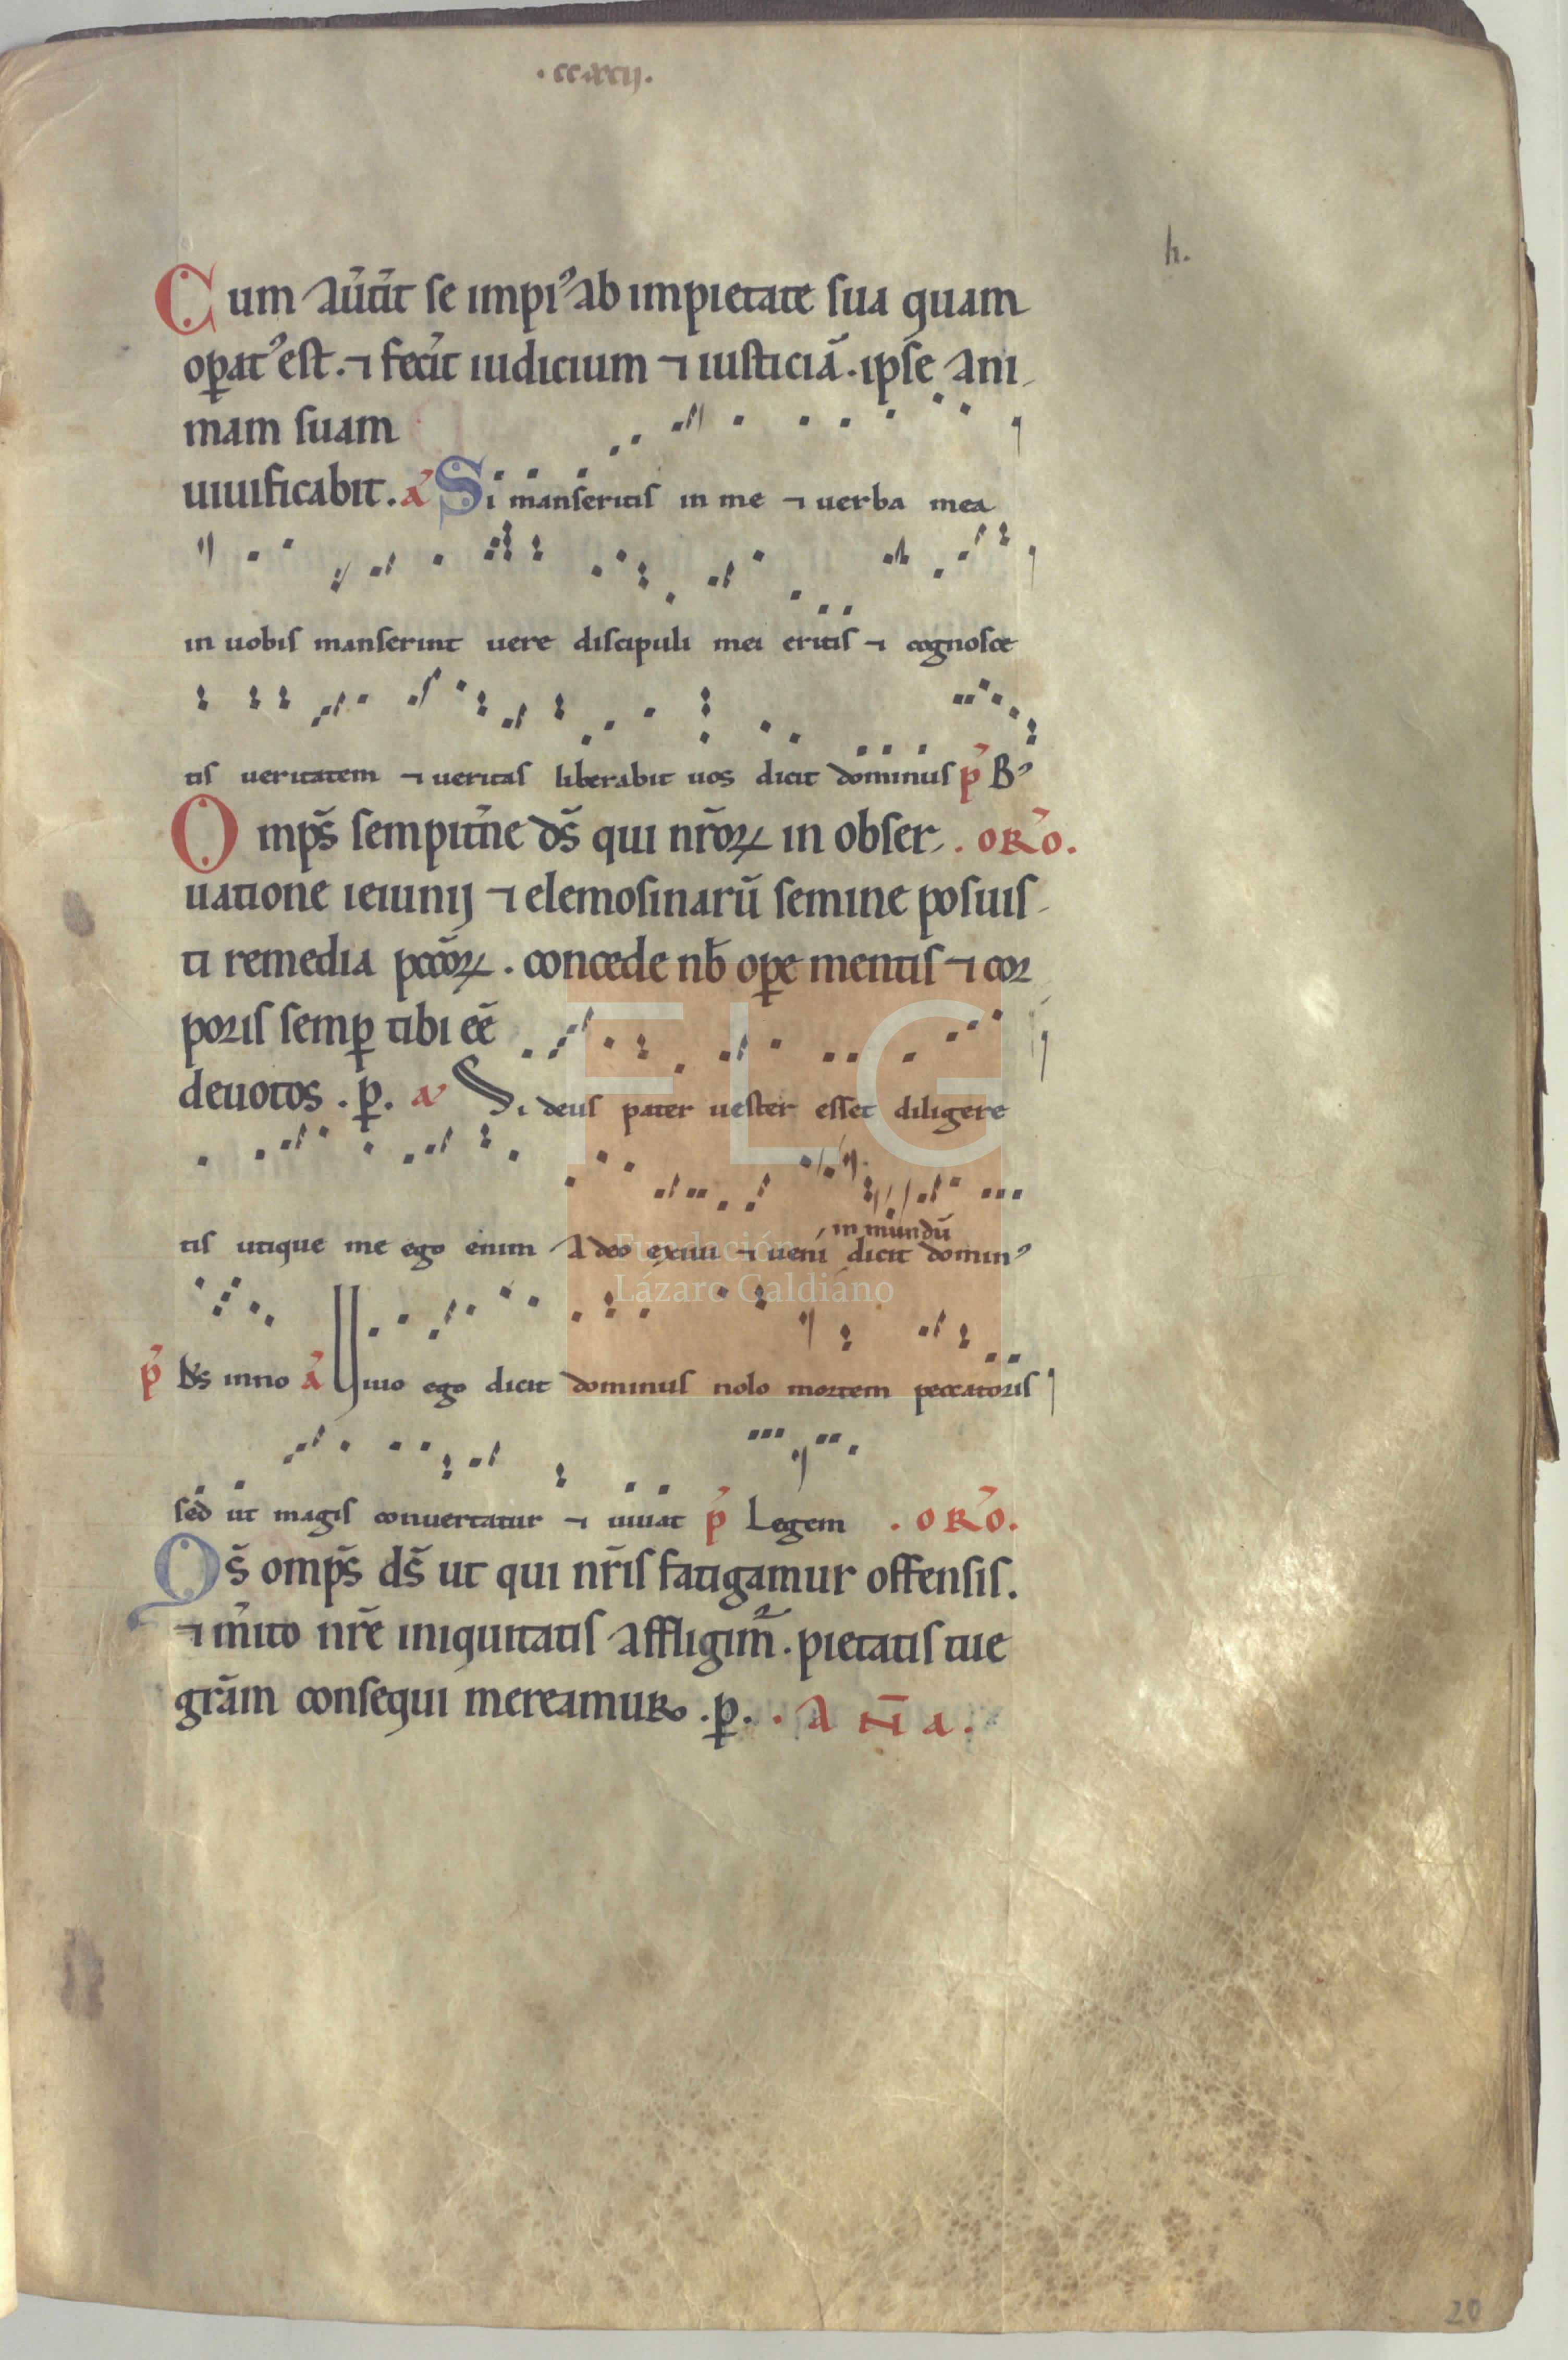 .ccxcij.
h.
Cum au̾t̾it se impiꝰ ab impietate sua quam
oꝑatꝰ est. ⁊ fec̾it iudicium ⁊ iusticiā. ipse ani
mam suam
uiuificabit. a̾ Si manseritis in me ⁊ uerba mea
in uobis manserint uere discipuli mei eritis ⁊ cognosce
tis ueritatem ⁊ ueritas liberabit uos dicit dominus p̾ Bꝰ
Omp̄s sempit̾ne ds̄ qui nr̄oꝝ in obser . oro̾.
uatione ieiunij ⁊ elemosinarū semine posuis
ti remedia pcc̄oꝝ. concede nb̄ oꝑe mentis ⁊ cor
poris semꝑ tibi ee̅
deuotos. ꝑ. a̾ Si deus pater uester esset diligere
tis utique me ego enim a deo exiui ⁊ ueni in mundū dicit dominꝰ
p̾ Ds inno a̾ Viuo ego dicit dominus nolo mortem peccatoris
sed ut magis conuertatur ⁊ uiuat p̾ Legem . oro̾.
Qs̄ omp̄s ds̄ ut qui nr̄is fatigamur offensis.
⁊ m̾ito nr̄e iniquitatis affligim̄. pietatis tue
gr̄am consequi mereamur. ꝑ. . A n̄ a.
FLG
Fundación
Lázaro Galdiano
20